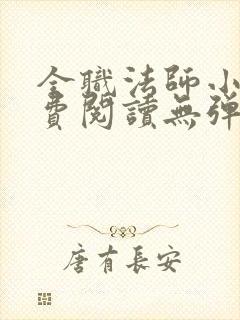 全職法師小
費閱讀無彈
唐有長安